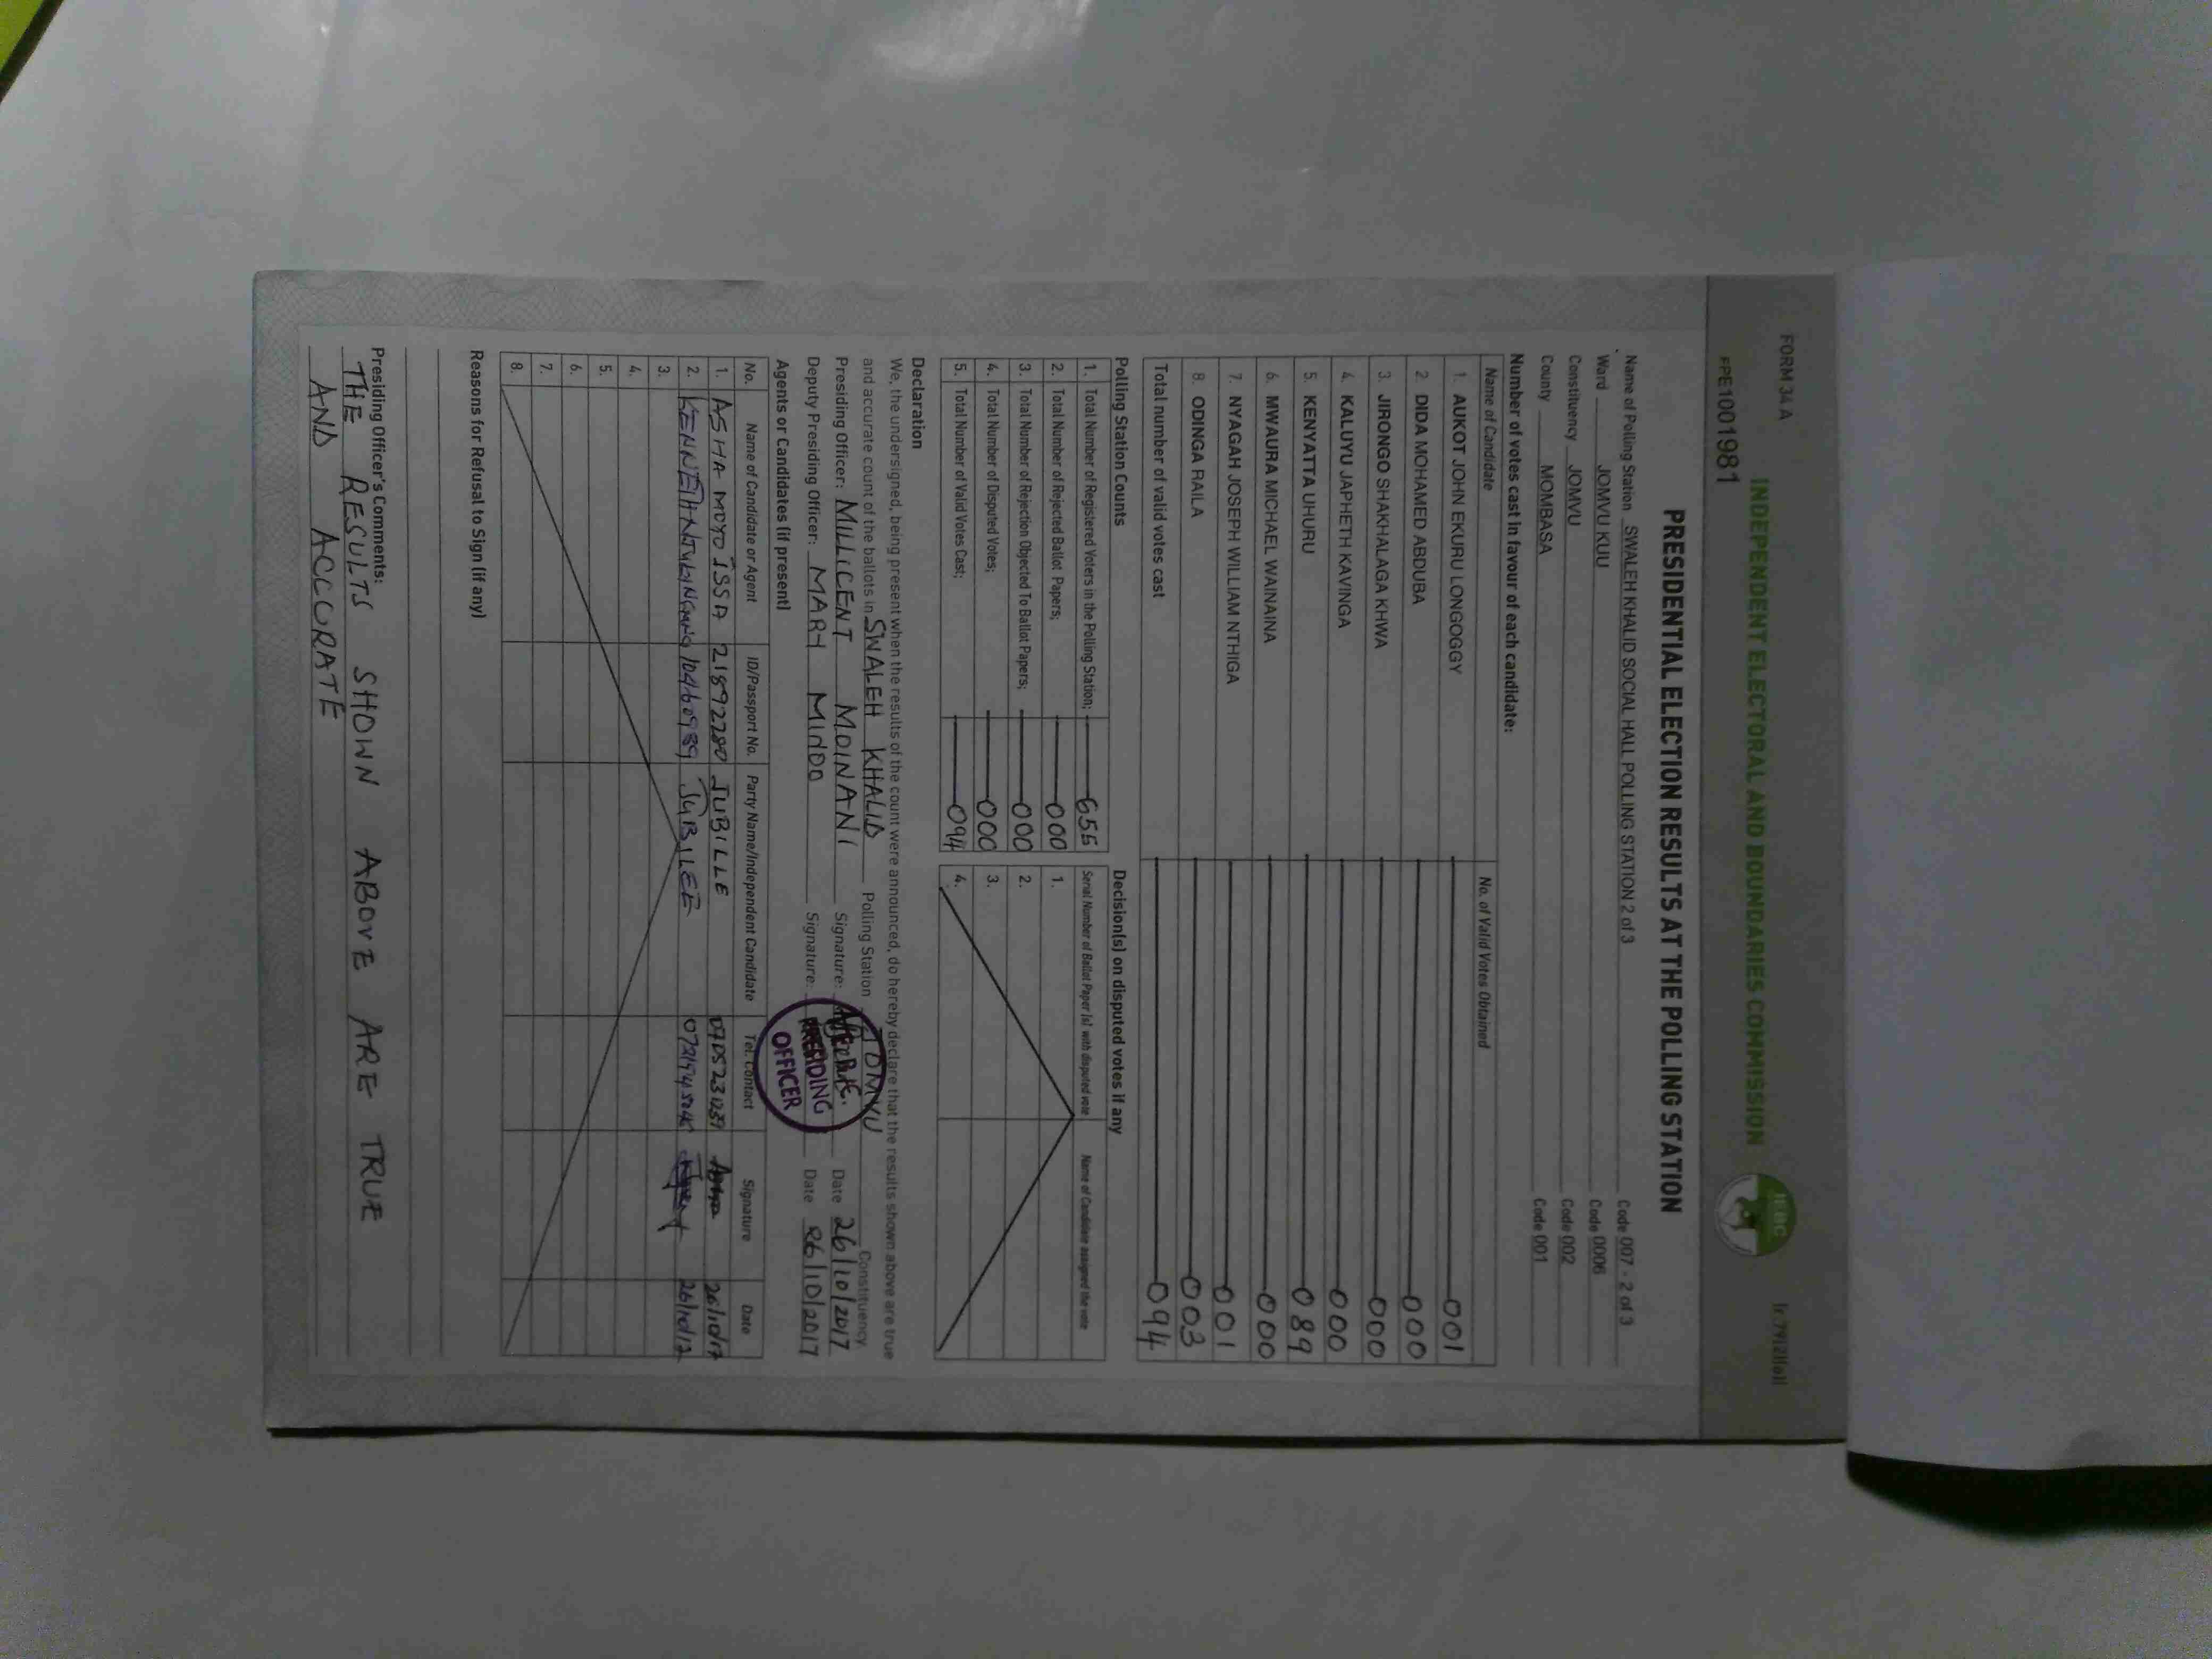 FORM 34 A
INDEPENDENT ELECTORAL AND BOUNDARIES COMMISSION
IEBC
PE1001981
PRESIDENTIAL ELECTION RESULTS AT THE POLLING STATION
Name of Polling Station SWALEH KHALID SOCIAL HALL POLLING STATION 2 of 3 Code 007 - 2 of 3
Ward JOMVU KUU Code 0006
Constituency JOMVU Code 002
County MOMBASA Code 001
Number of votes cast in favour of each candidate:
Name of Candidate No. of Valid Votes Obtained
1. AUKOT JOHN EKURU LONGOGGY 001
2. DIDA MOHAMED ABDUBA 000
3. JIRONGO SHAKHALAGA KHWA 000
4. KALUYU JAPHETH KAVINGA 000
5. KENYATTA UHURU 089
6. MWAURA MICHAEL WAINAINA 000
7. NYAGAH JOSEPH WILLIAM NTHIGA 001
8. ODINGA RAILA 003
Total number of valid votes cast 094
Polling Station Counts Decision(s) on disputed votes if any
1. Total Number of Registered Voters in the Polling Station; 655 Serial Number of Ballot Paper (s) with disputed vote Name of Candidate assigned the vote
2. Total Number of Rejected Ballot Papers; 000 1.
3. Total Number of Rejection Objected To Ballot Papers; 000 2.
4. Total Number of Disputed Votes; 000 3.
5. Total Number of Valid Votes Cast; 094 4.
Declaration
We, the undersigned, being present when the results of the count were announced, do hereby declare that the results shown above are true
and accurate count of the ballots in SWALEH KHALID Polling Station JOMVU Constituency
Presiding Officer: MILLICENT MOINANI Signature: Date 26/10/2017
Deputy Presiding Officer: MARY Signature: Date 26/10/2017
PRESIDING
OFFICER
Agents or Candidates (if present)
No. Name of Candidate or Agent ID/Passport No. Party Name/Independent Candidate Tel. Contact Signature Date
1. ASHA MOYO ISSA 21892280 JUBILLE 26/10/17
2. KENNETH JUBILEE
3.
4.
5.
6.
7.
8.
Reasons for Refusal to Sign (if any)
Presiding Officer's Comments:
THE RESULTS SHOWN ABOVE ARE TRUE
AND ACCURATE